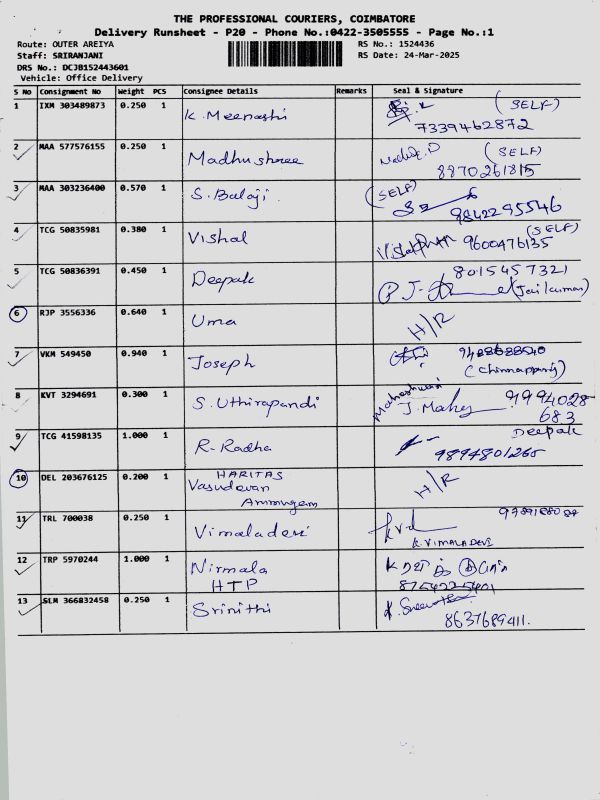 THE PROFESSIONAL COURIERS, COIMBATORE
Delivery Runsheet - P20 - Phone No.:0422-3505555 - Page No.:1
Route: OUTER AREIYA RS No.: 1524436
Staff: SRIRANJANI RS Date: 24-Mar-2025
DRS No.: DCJB152443601
Vehicle: Office Delivery
S No Consignment No Weight PCS Consignee Details Remarks Seal & Signature
1 IXM 303489873 0.250 1 K. Meenashi (SELF)
7339462872
2 MAA 577576155 0.250 1 Madhushree (SELF)
8870261815
3 MAA 303236400 0.570 1 S. Balaji (SELF)
9842295546
4 TCG 50835981 0.380 1 Vishal (SELF)
9600476135
5 TCG 50836391 0.450 1 Deepak 8015457321
(Jaikumar)
6 RJP 3556336 0.640 1 Uma H/R
7 VKM 549450 0.940 1 Joseph
8 KVT 3294691 0.300 1 S. Uthirapandi Maheshwari 9994028
683
9 TCG 41598135 1.000 1 R. Radha Deepak
9894801265
10 DEL 203676125 0.200 1 HARITAS H/R
Vasudevan
11 TRL 700038 0.250 1 Vimaladevi
K. VIMALA DEVI
12 TRP 5970244 1.000 1 Nirmala
HTP 8754225401
13 SLM 366832458 0.250 1 Srinithi
8637689411.